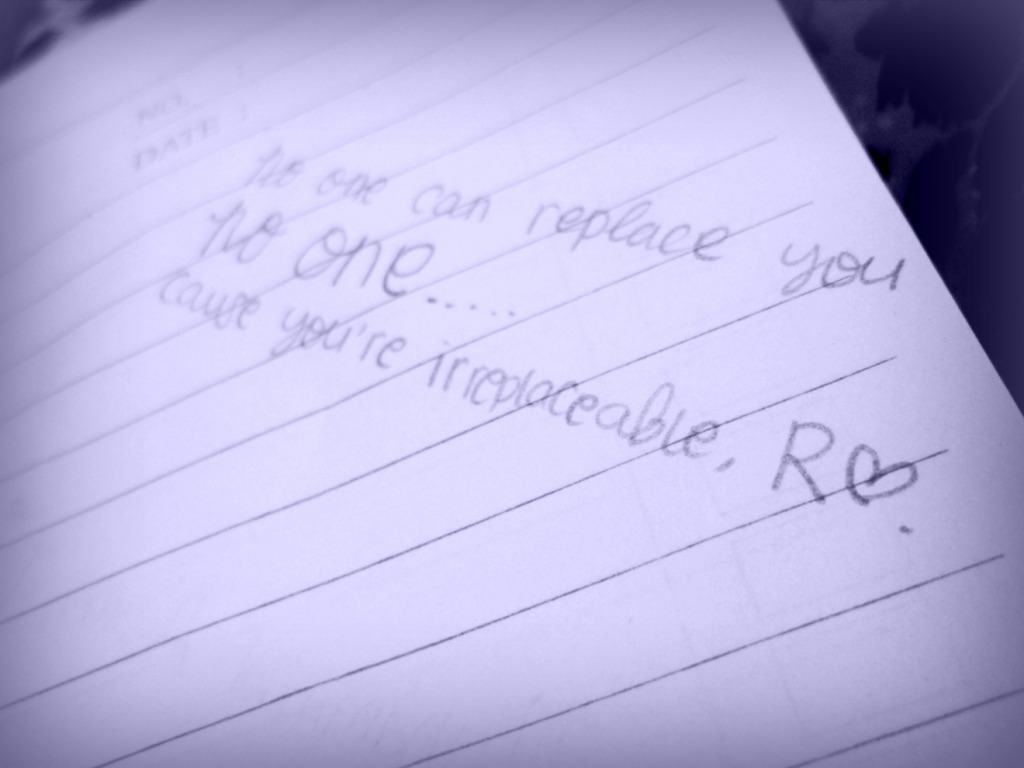 NO.
DATE :
No one can replace you
No one.....
cause you're irreplaceable, R♡.